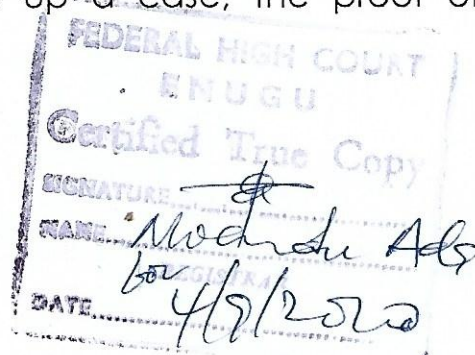 up a case, the proof of
FEDERAL HIGH COURT
ENUGU
Certified True Copy
SIGNATURE
NAME
for REGISTRAR
DATE 4/9/2020